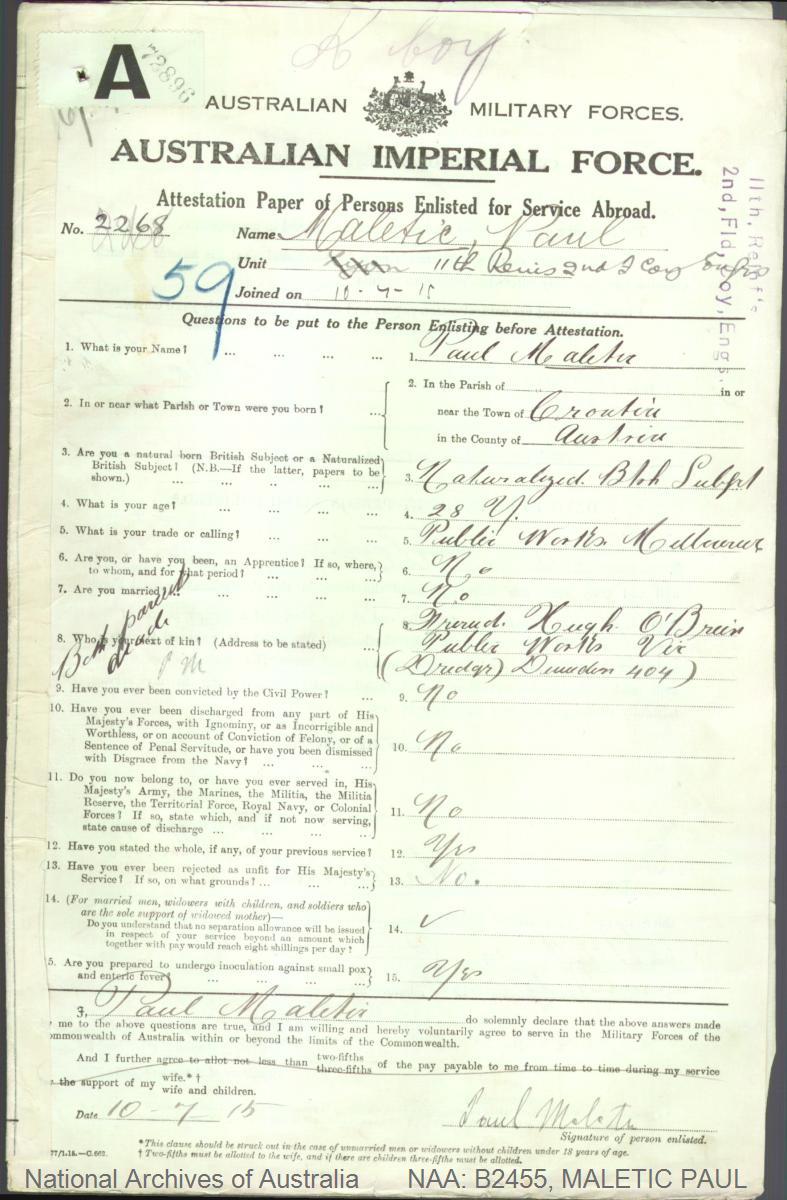 K boy
A
72896
AUSTRALIAN MILITARY FORCES.
AUSTRALIAN IMPERIAL FORCE.
Attestation Paper of Persons Enlisted for Service Abroad.
11th, Reinf's
2nd, Fld, Coy, Engs.
No. 2268
Name Maletic, Paul
Unit 11th Reinis 2nd F Coy Engrs
59
Joined on 10-7-15
Questions to be put to the Person Enlisting before Attestation.
1. What is your Name? ... ... ... ... 1. Paul Maletic
2. In or near what Parish or Town were you born? ...
2. In the Parish of in or
near the Town of Croatia
in the County of Austria
3. Are you a natural born British Subject or a Naturalized
British Subject? (N.B.—If the latter, papers to be
shown.) ... ... ... ... ...
3. Naturalized Btsh Subjet
4. What is your age? ... ... ... ... 4. 28 Y.
5. What is your trade or calling? ... ... ... 5. Public Works Melbourne
6. Are you, or have you been, an Apprentice? If so, where,
to whom, and for what period? ... ... ...
6. No
7. Are you married? ... ... ... ... 7. No
Both parents
dead
8. Who is your next of kin? (Address to be stated) ...
8. Friend. Hugh O'Brien
Public Works Vic
(Dredge) Dunedin 404)
9. Have you ever been convicted by the Civil Power? ... 9. No
10. Have you ever been discharged from any part of His
Majesty's Forces, with Ignominy, or as Incorrigible and
Worthless, or on account of Conviction of Felony, or of a
Sentence of Penal Servitude, or have you been dismissed
with Disgrace from the Navy? ... ... ...
10. No
11. Do you now belong to, or have you ever served in, His
Majesty's Army, the Marines, the Militia, the Militia
Reserve, the Territorial Force, Royal Navy, or Colonial
Forces? If so, state which, and if not now serving,
state cause of discharge ... ... ... ...
11. No
12. Have you stated the whole, if any, of your previous service? 12. Yes
13. Have you ever been rejected as unfit for His Majesty's
Service? If so, on what grounds? ... ... ...
13. No.
14. (For married men, widowers with children, and soldiers who
are the sole support of widowed mother)—
Do you understand that no separation allowance will be issued
in respect of your service beyond an amount which
together with pay would reach eight shillings per day?
14. ✓
5. Are you prepared to undergo inoculation against small pox
and enteric fever? ... ... ... ...
15. Yes
I, Paul Maletic do solemnly declare that the above answers made
me to the above questions are true, and I am willing and hereby voluntarily agree to serve in the Military Forces of the
ommonwealth of Australia within or beyond the limits of the Commonwealth.
And I further agree to allot not less than two-fifths three-fifths of the pay payable to me from time to time during my service
the support of my wife.*† wife and children.
Date 10-7-15
Paul Maletic
Signature of person enlisted.
*This clause should be struck out in the case of unmarried men or widowers without children under 18 years of age.
† Two-fifths must be allotted to the wife, and if there are children three-fifths must be allotted.
77/1.15.—C.662.
National Archives of Australia NAA: B2455, MALETIC PAUL